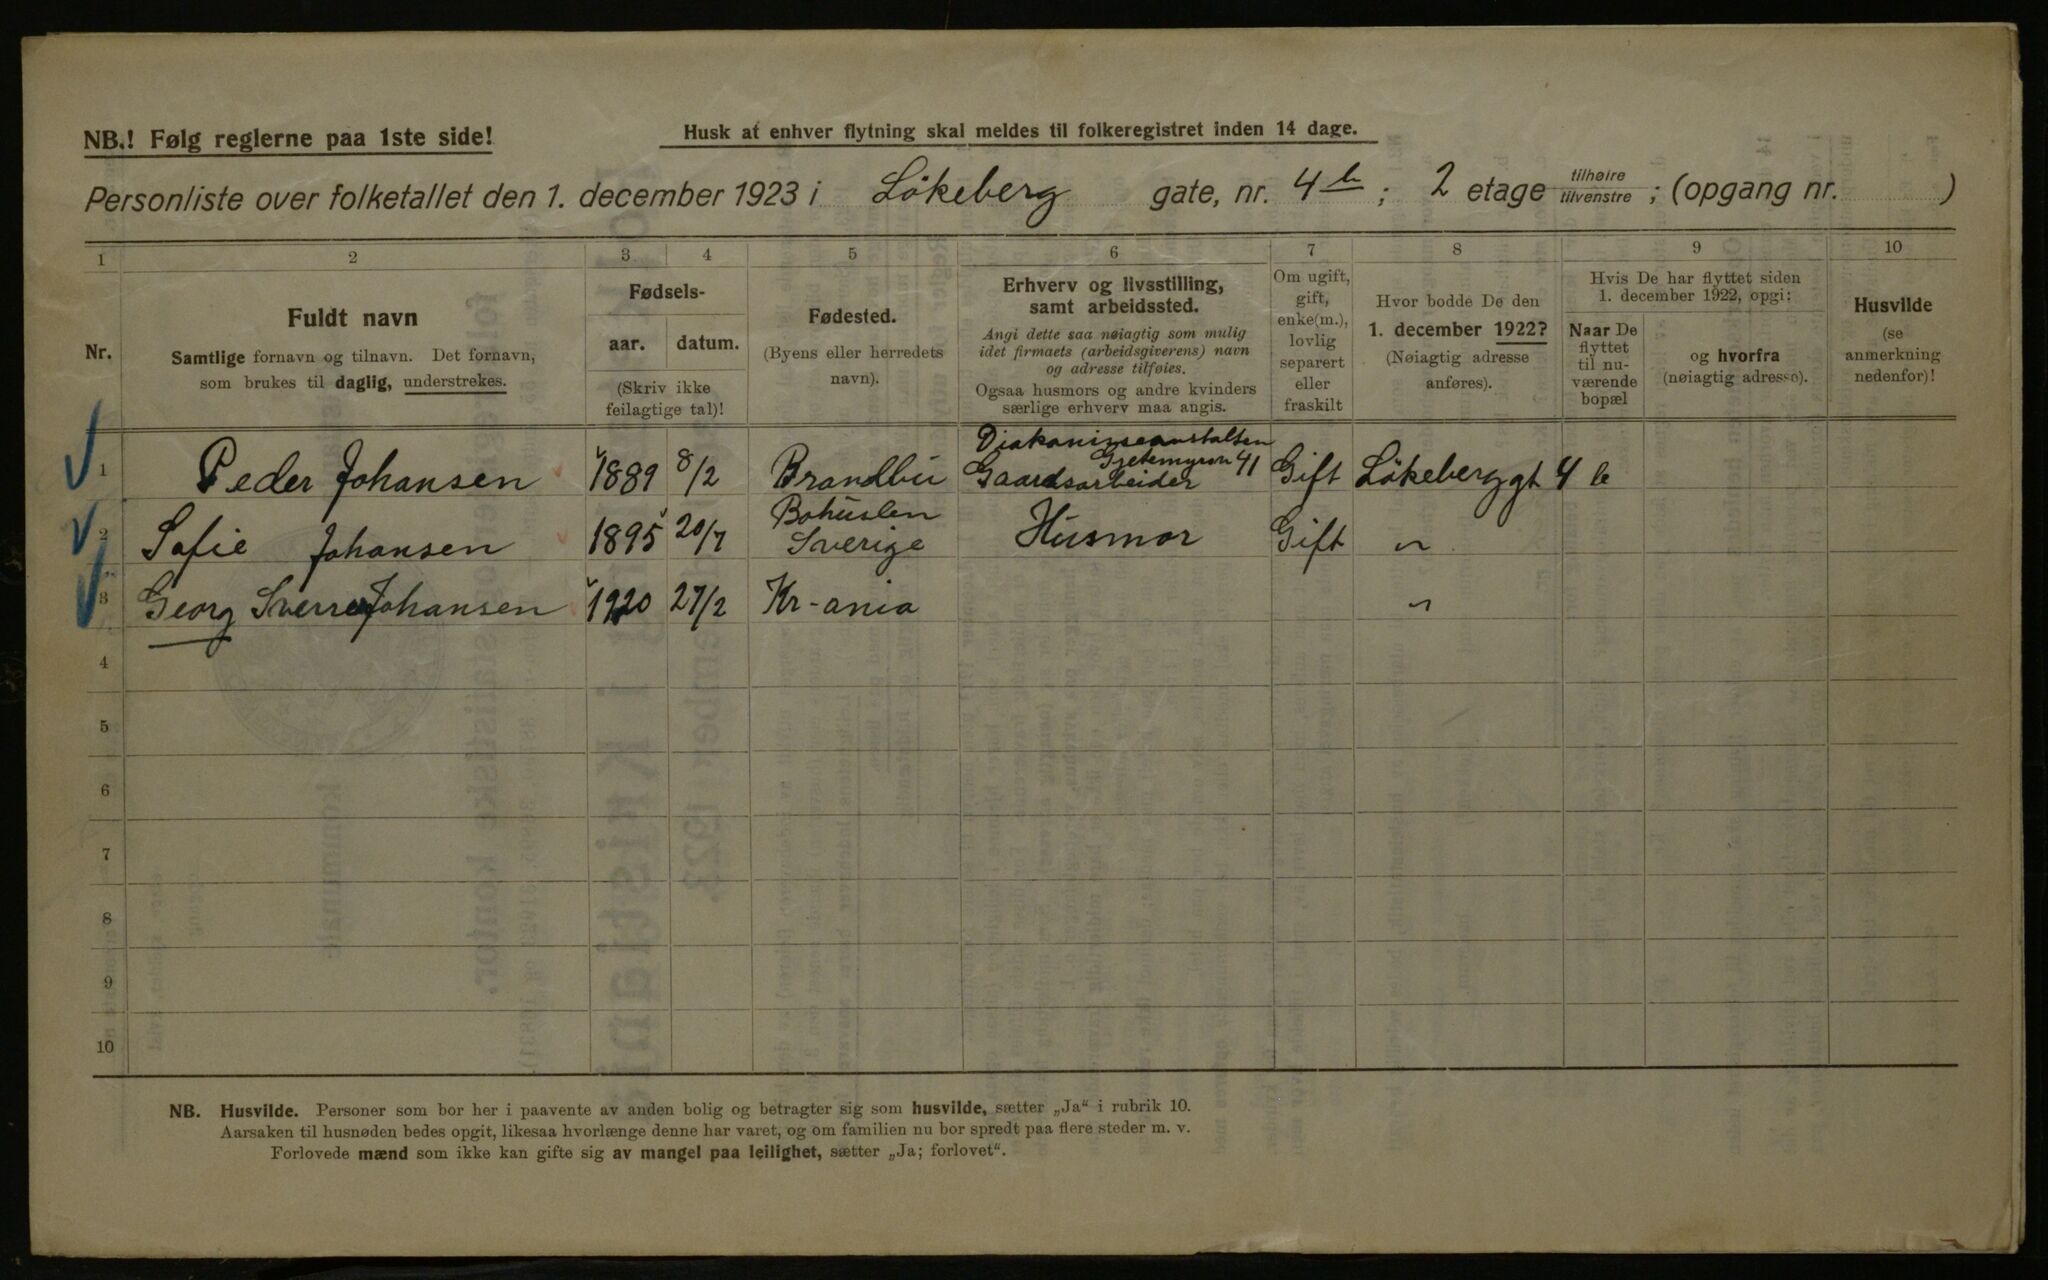 NB.! Følg reglerne paa 1ste side!
Husk at enhver flytning skal meldes til folkeregistret inden 14 dage.
Personliste over folketallet den 1. december 1923 i Lökeberg gate, nr. 4 b ; 2 etage tilhøire tilvenstre ; (opgang nr. )
1 2 3 4 5 6 7 8 9 10
Nr.
Fuldt navn
Samtlige fornavn og tilnavn. Det fornavn,
som brukes til daglig, understrekes.
Fødsels-
aar. datum.
(Skriv ikke
feilagtige tal)!
Fødested.
(Byens eller herredets
navn).
Erhverv og livsstilling,
samt arbeidssted.
Angi dette saa nøiagtig som mulig
idet firmaets (arbeidsgiverens) navn
og adresse tilføies.
Ogsaa husmors og andre kvinders
særlige erhverv maa angis.
Om ugift,
gift,
enke(m.),
lovlig
separert
eller
fraskilt
Hvor bodde De den
1. december 1922?
(Nøiagtig adresse
anføres).
Hvis De har flyttet siden
1. december 1922, opgi:
Naar De
flyttet
til nu-
værende
bopæl
og hvorfra
(nøiagtig adresse).
Husvilde
(se
anmerkning
nedenfor)!
Diakonisseanstalten
Gjetemyrsv 41
1 Peder Johansen 1889 8/2 Brandbu Gaardsarbeider Gift Lökeberggt 4 b
Bohuslen
2 Sofie Johansen 1895 20/7 Sverige Husmor Gift "
3 Georg Sverre Johansen 1920 27/2 Kr-ania "
4
5
6
7
8
9
10
NB. Husvilde. Personer som bor her i paavente av anden bolig og betragter sig som husvilde, sætter „Ja“ i rubrik 10.
Aarsaken til husnøden bedes opgit, likesaa hvorlænge denne har varet, og om familien nu bor spredt paa flere steder m. v.
Forlovede mænd som ikke kan gifte sig av mangel paa leilighet, sætter „Ja; forlovet“.